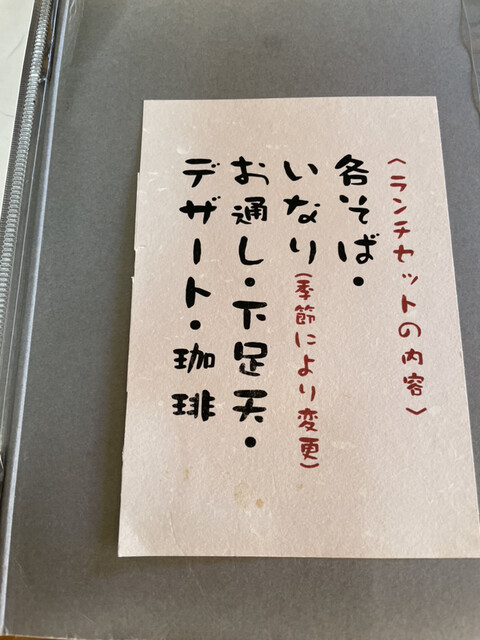 〈ランチセットの内容〉
各そば・
いなり(季節により変更)
お通し・下足天・
デザート・珈琲